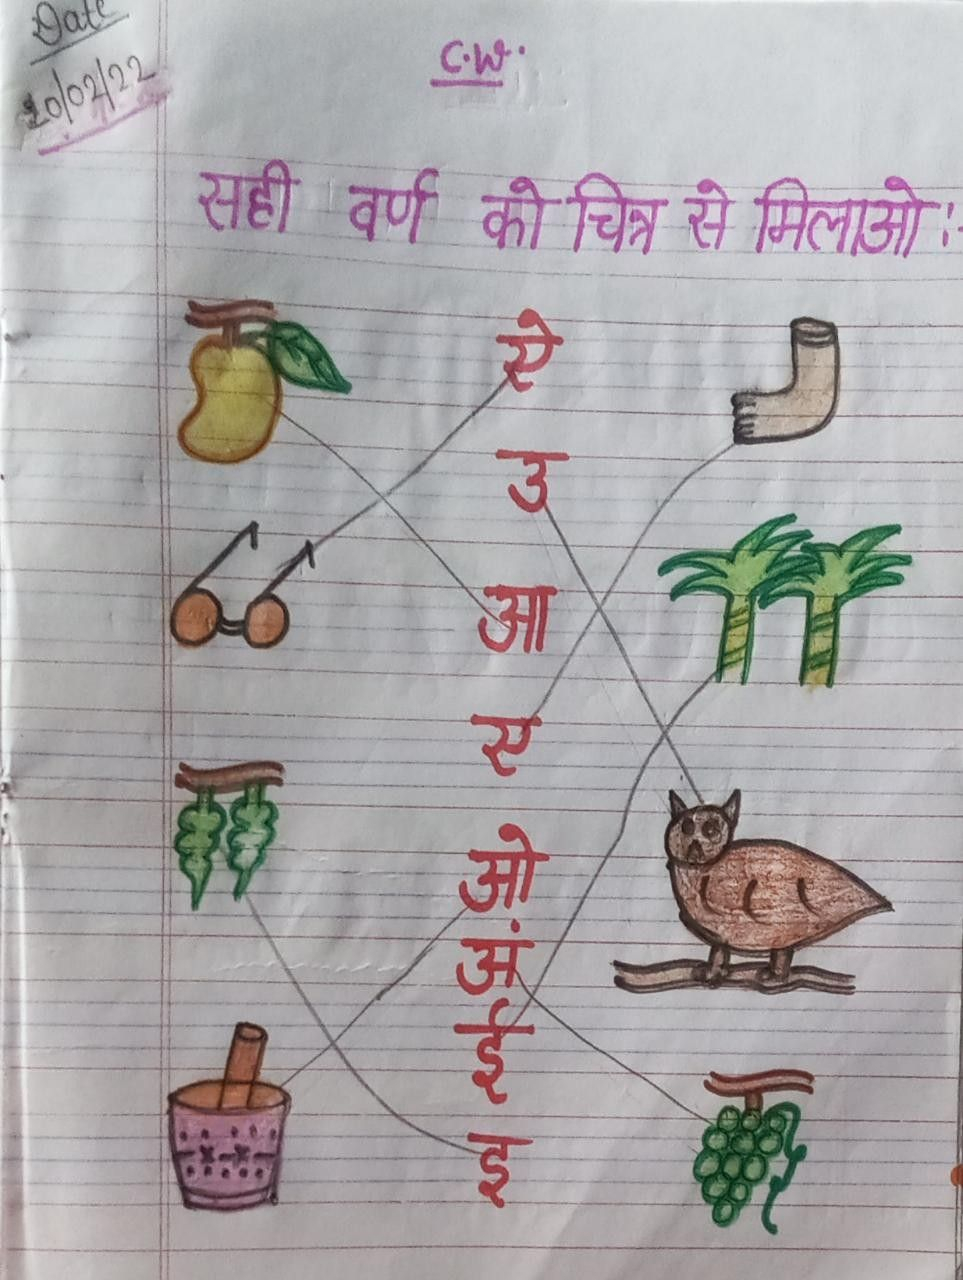 Date
20/02/22
C.W.
सही वर्ण को चित्र से मिलाओ :-
ऐ
उ
आ
ए
ओ
अं
ई
इ